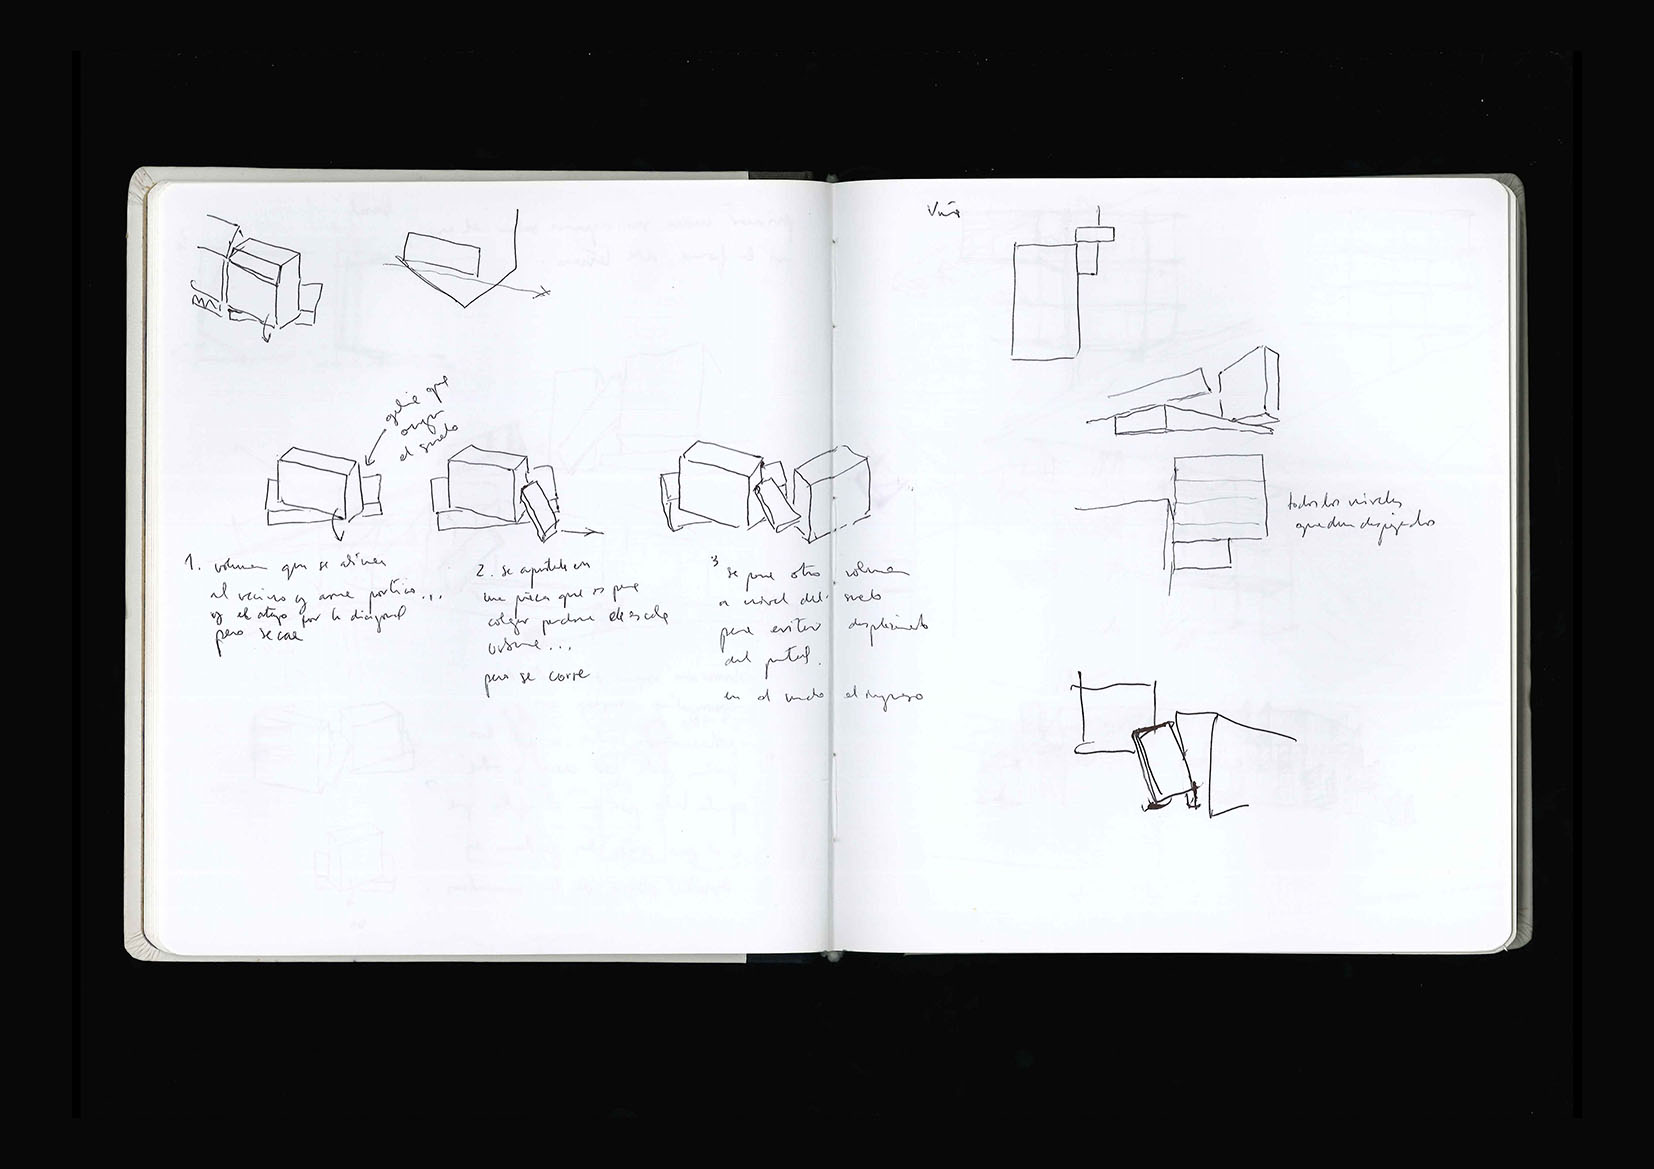 que
el suelo
1. volumen que se alinea
al vecino y arma pórtico...
y el atajo por la diagonal
pero se cae
2. se apuntala con
una pieza que es para
colgar
urbana...
pero se corre
3 se pone otro volumen
a nivel del suelo
para evitar desplazamiento
del portal.
en el medio el ingreso
todos los niveles
quedan despejados